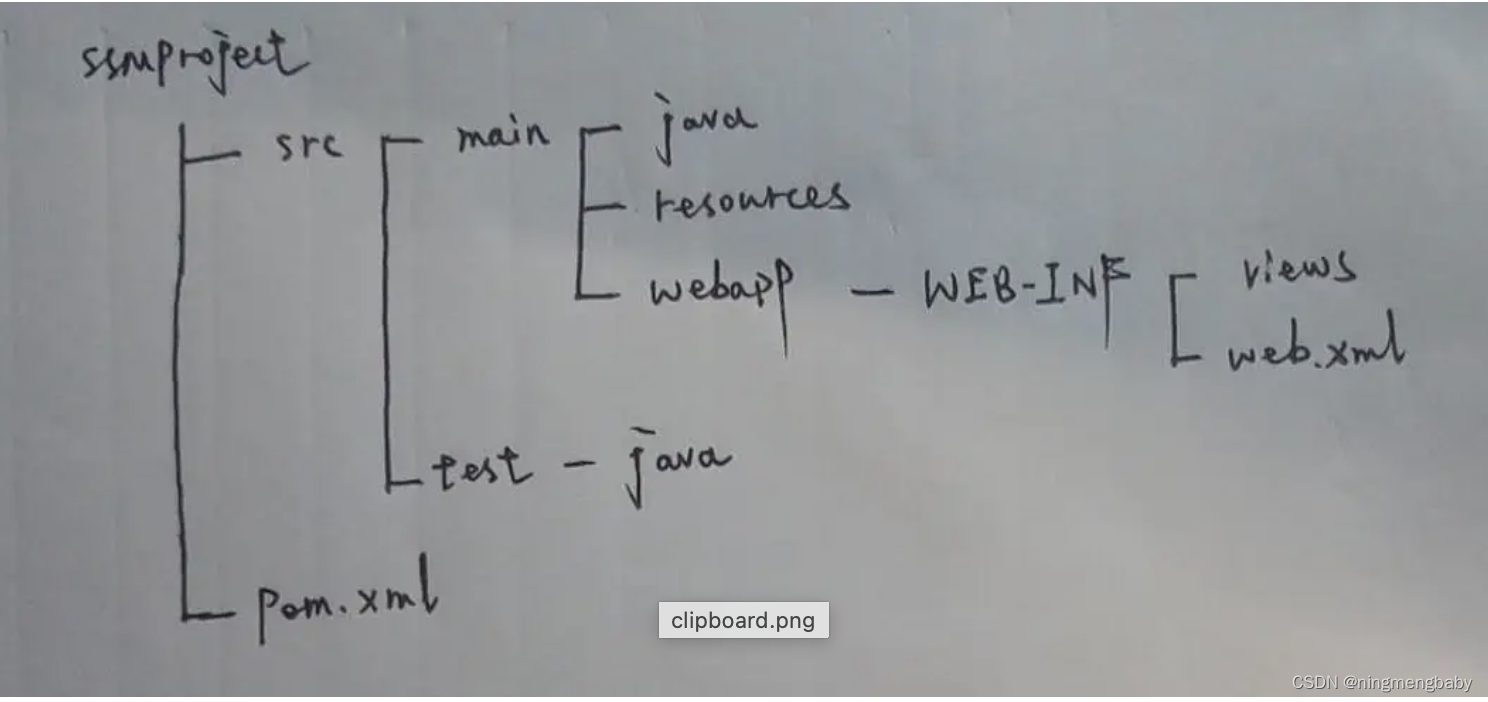 ssmproject
src main java
resources
webapp - WEB-INF views
web.xml
test - java
pom.xml
clipboard.png
CSDN @ningmengbaby